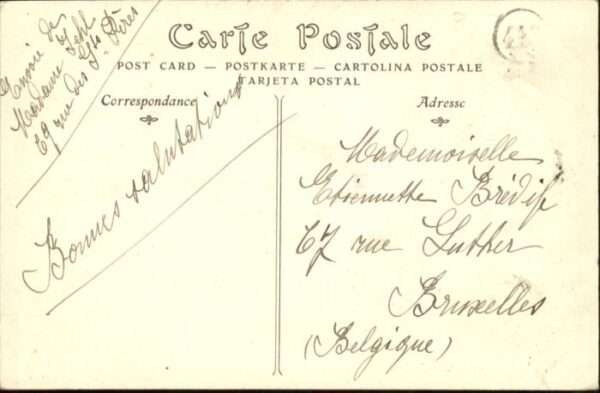 Carte Postale
POST CARD — POSTKARTE — CARTOLINA POSTALE
TARJETA POSTAL
Correspondance
Adresse
Envoie de
Madame
67 rue des Sts Pères
Bonnes salutations
Mademoiselle
Etiennette Brédif
67 rue Luther
Bruxelles
(Belgique)